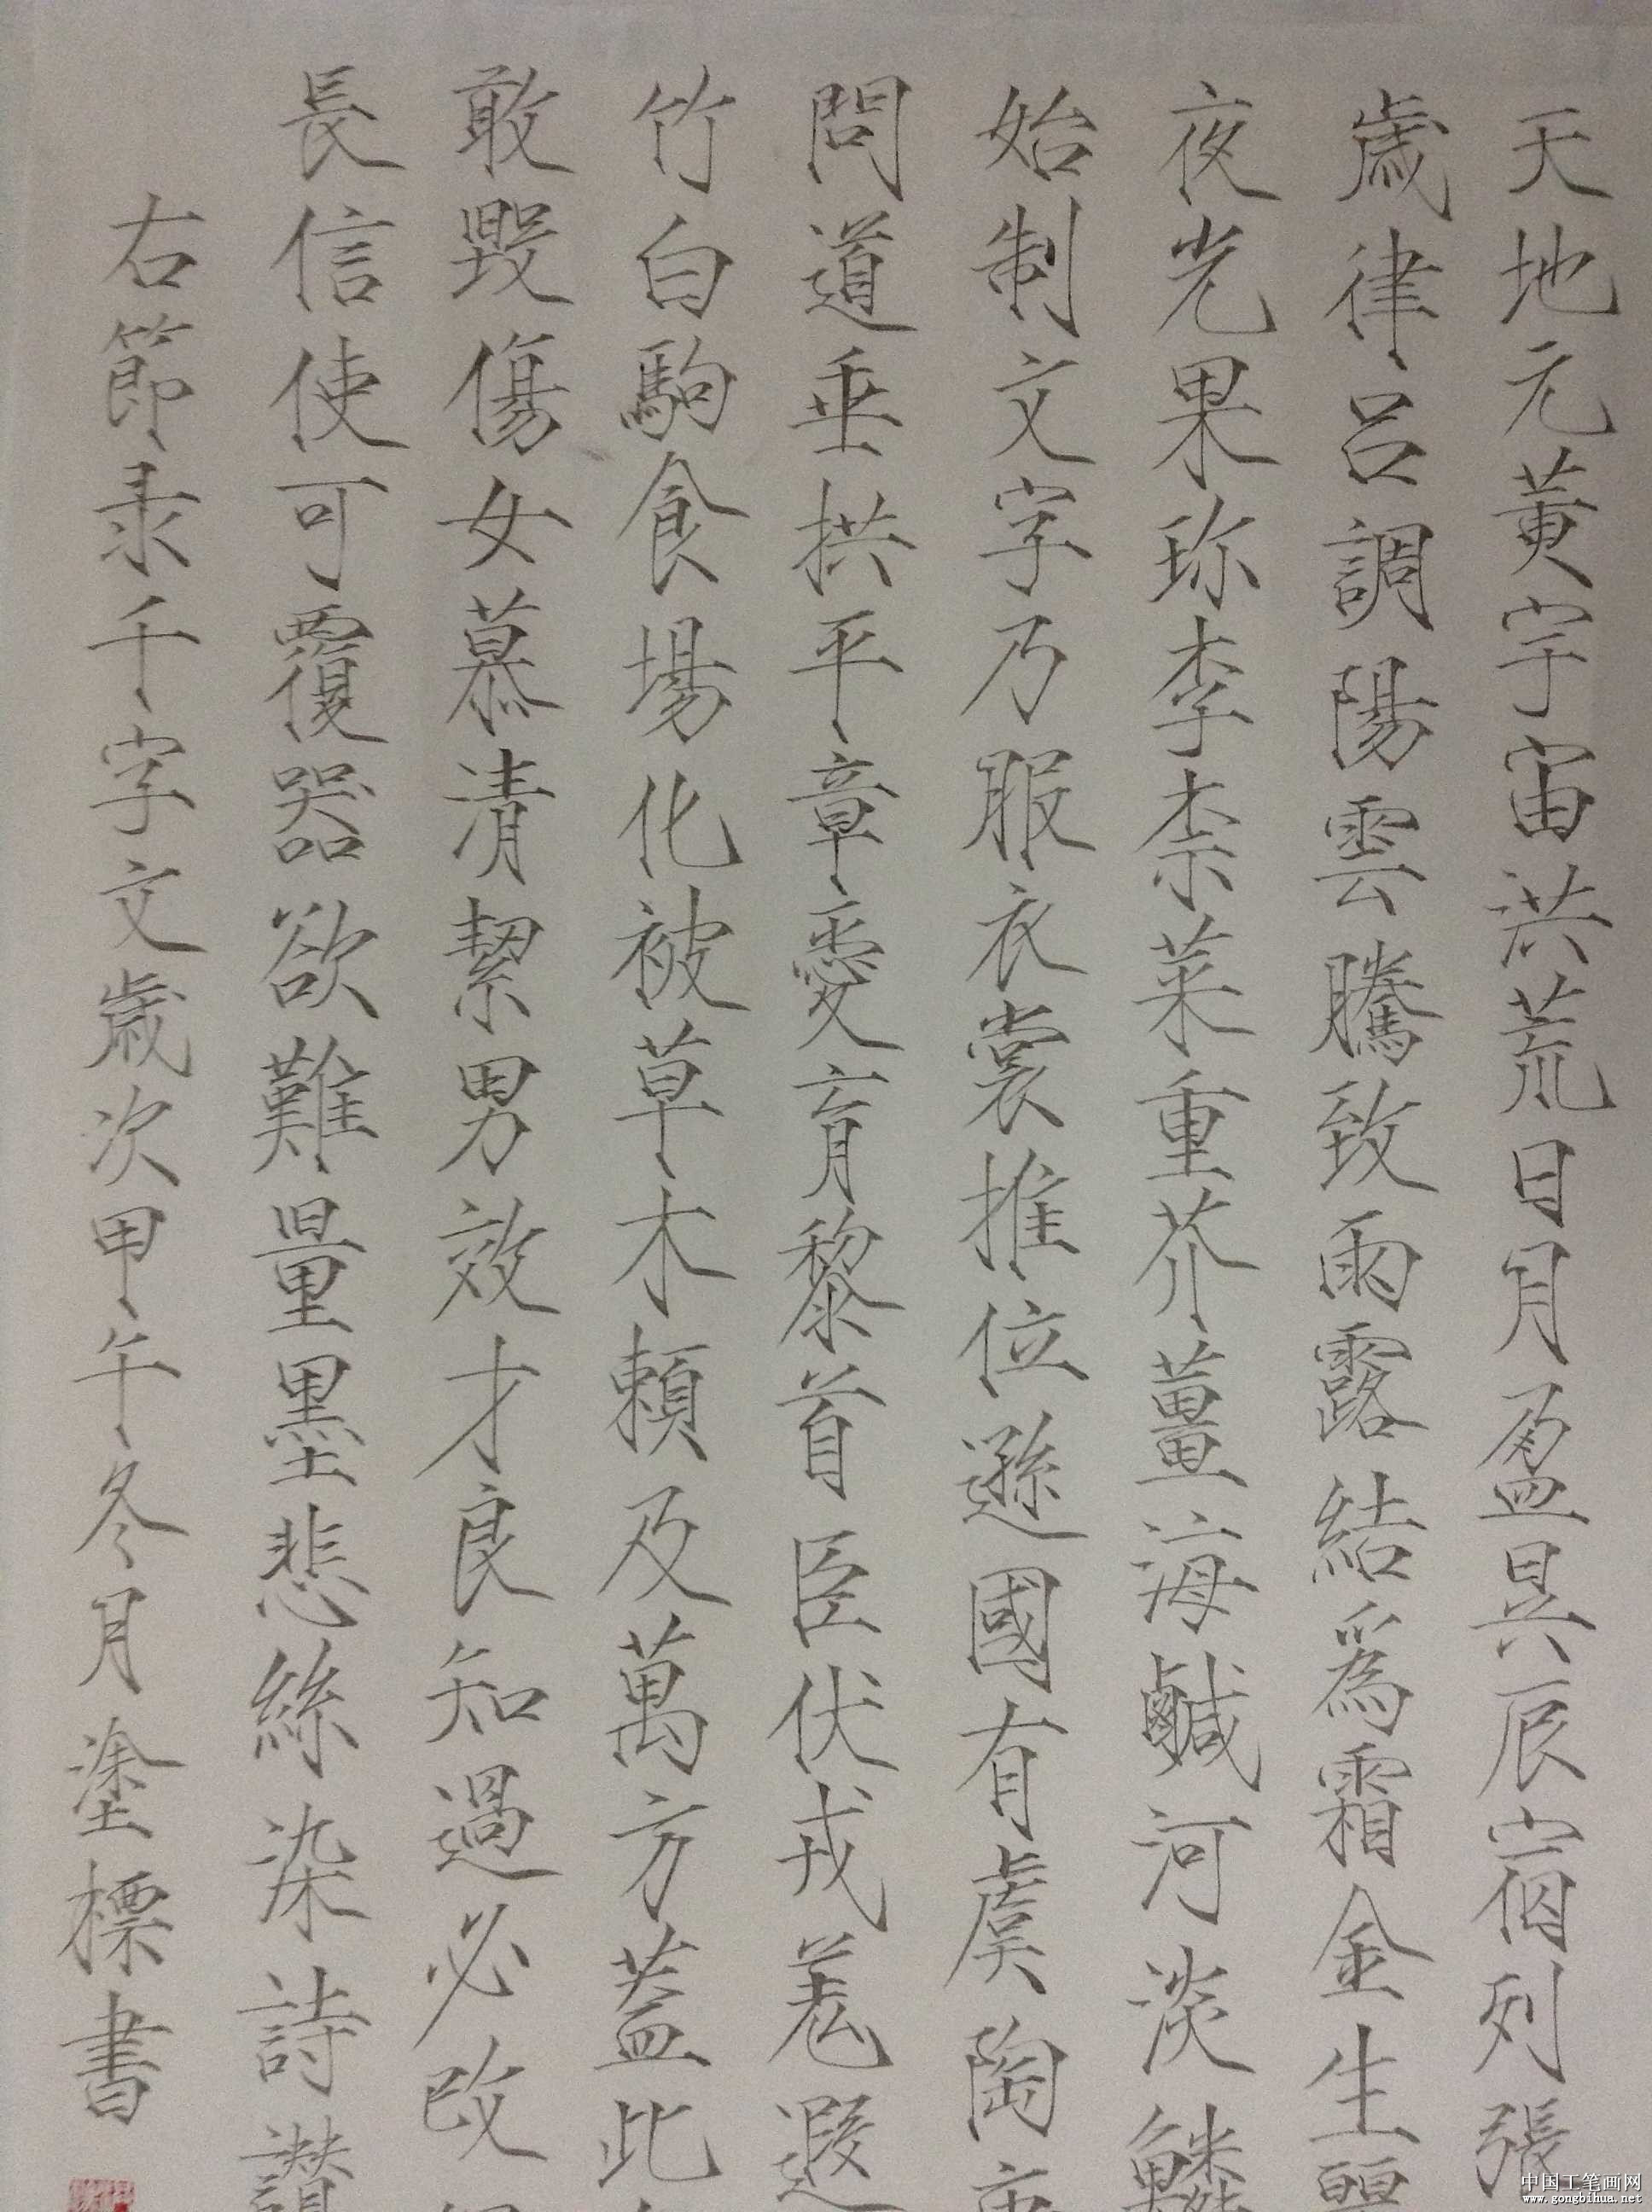 天地元黃宇宙洪荒日月盈昃辰宿列張
歲律呂調陽雲騰致雨露結爲霜金生麗
夜光果珎李柰菜重芥薑海鹹河淡鱗
始制文字乃服衣裳推位遜國有虞陶唐
問道垂拱平章愛育黎首臣伏戎羌遐
竹白駒食場化被草木賴及萬方蓋此
敢毀傷女慕清絜男效才良知過必改
長信使可覆器欲難量墨悲絲染詩讚
右節录千字文歲次甲午冬月塗標書
中国工笔画网
www.gongbihua.net